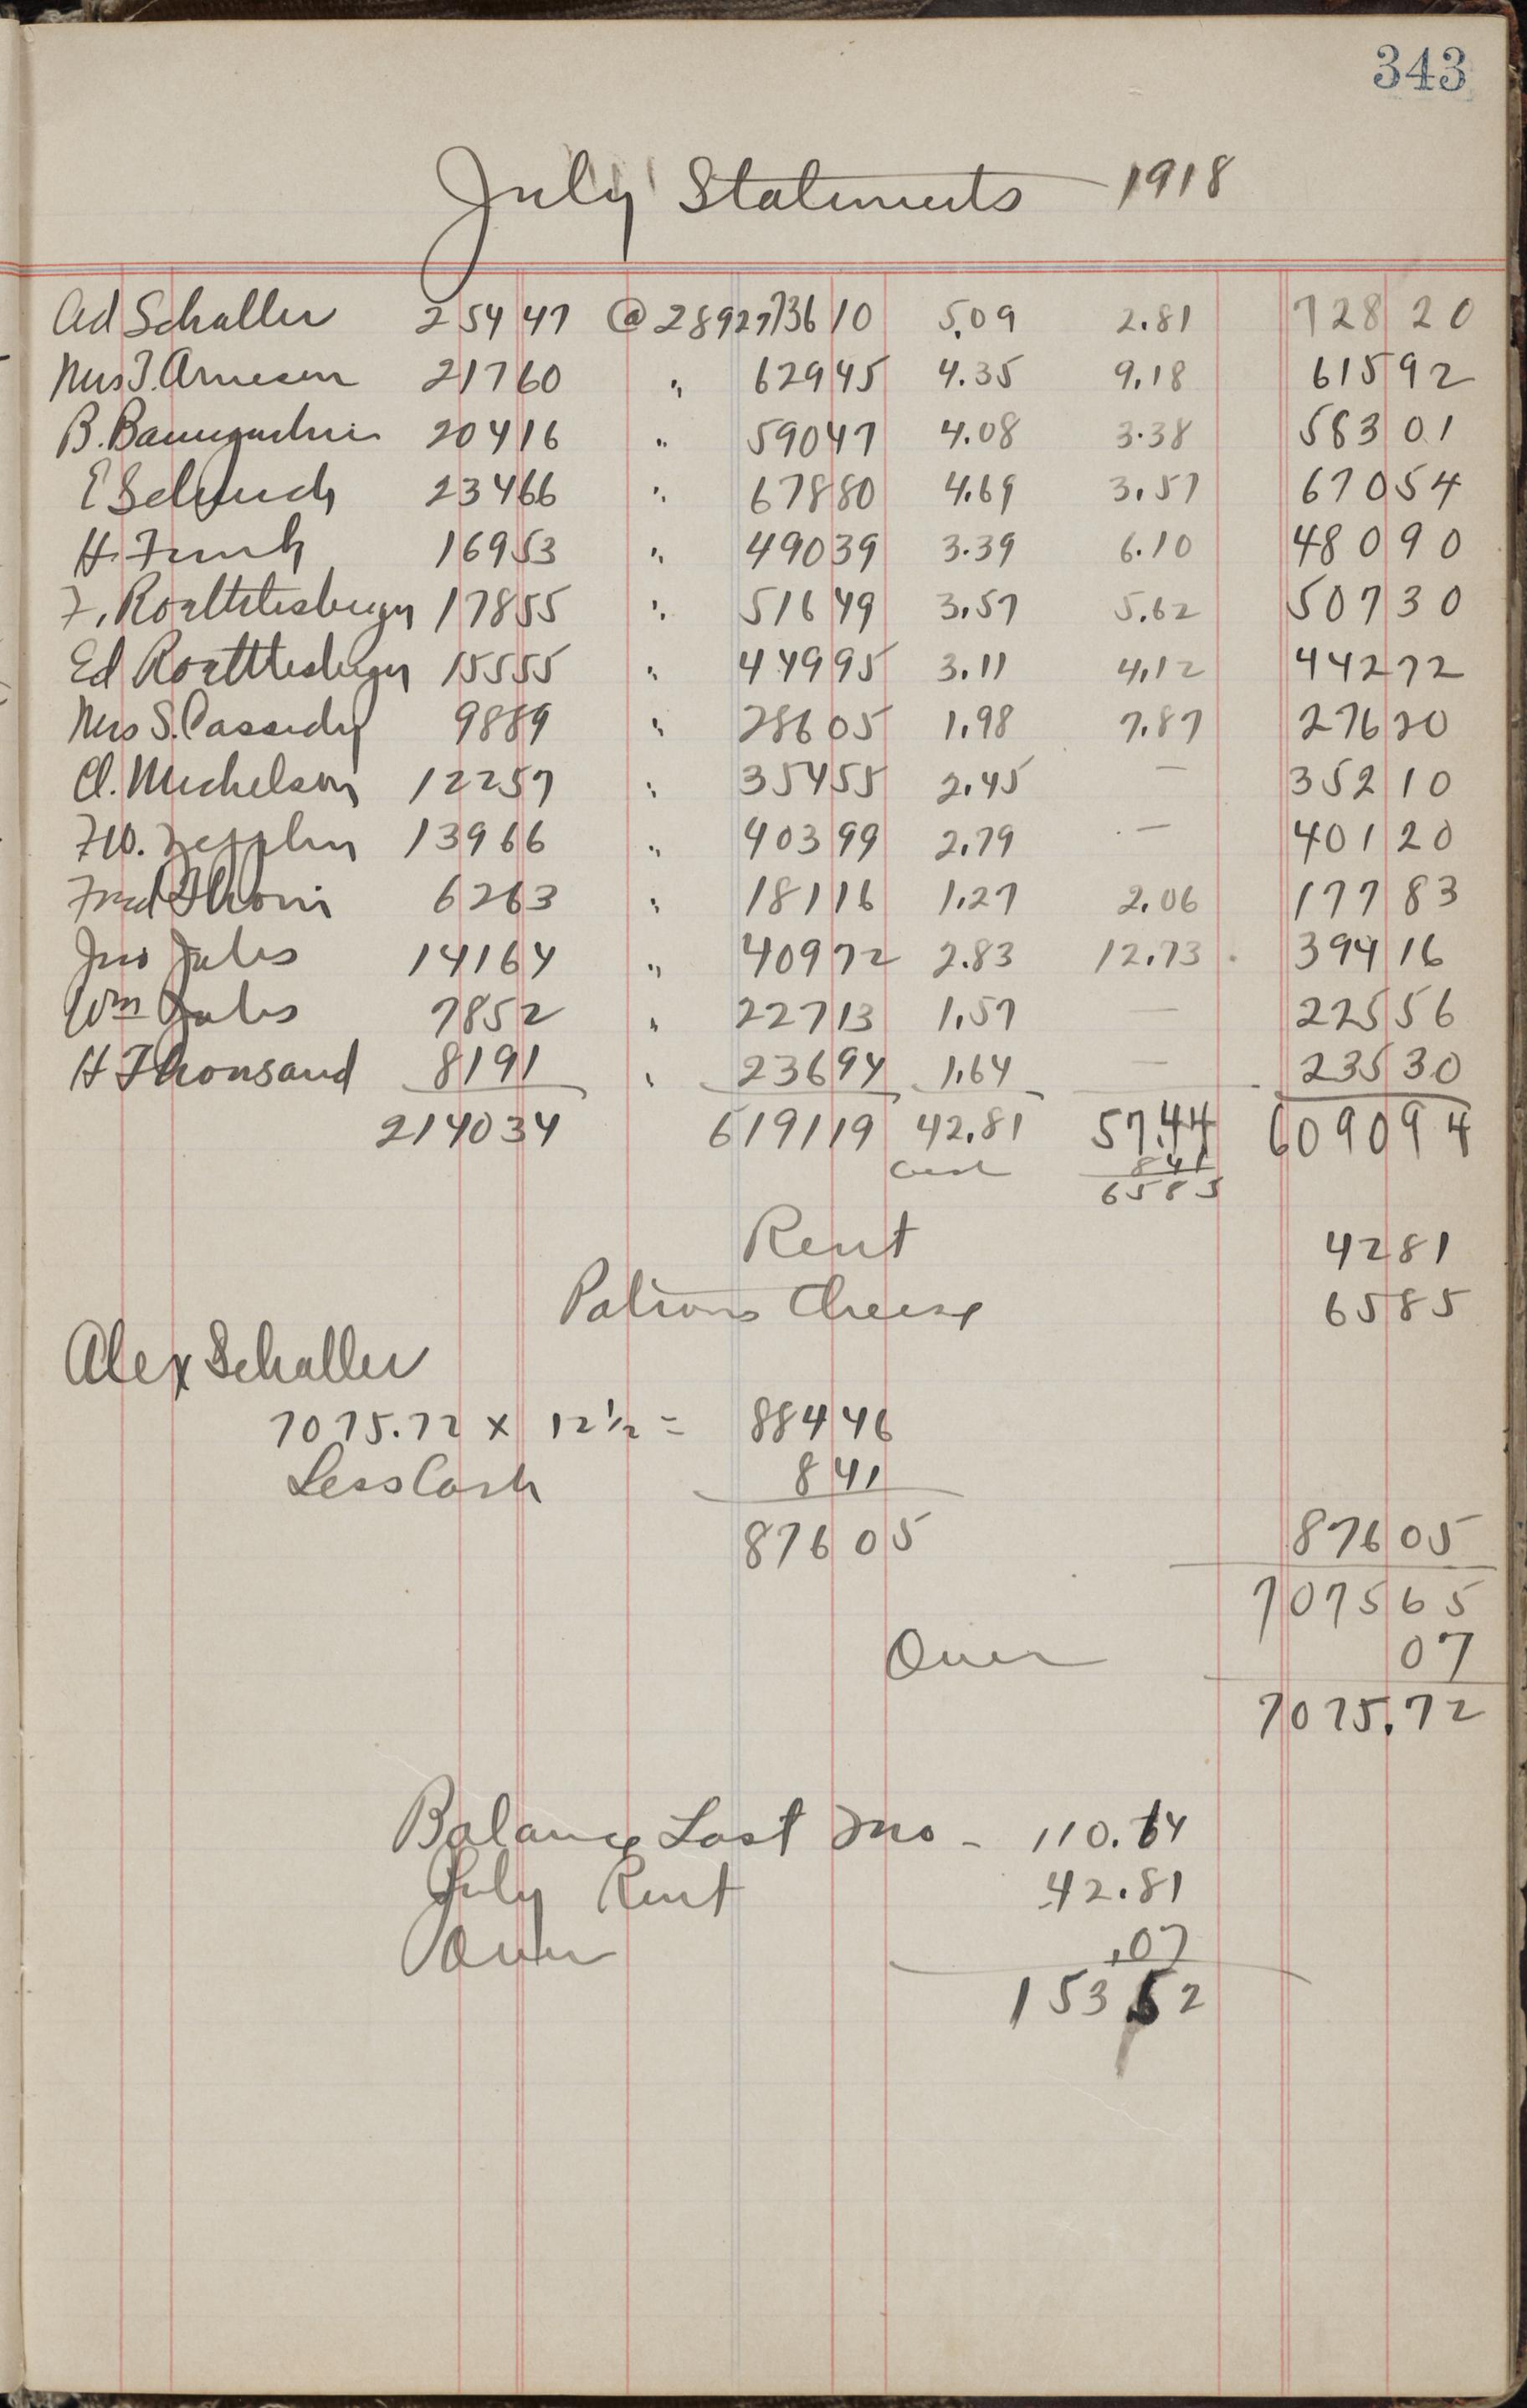 343
July Statements 1918
Ad Schaller 25447 @ 28927 73610 5.09 2.81 72820
Mrs T. Arneson 21760 " 62945 4.35 9.18 61592
B. Baumgartner 20416 " 59047 4.08 3.38 58301
E 23466 " 67880 4.69 3.57 67054
H. Funk 16953 " 49039 3.39 6.10 48090
F. Roethlisberger 17855 " 51649 3.57 5.62 50730
Ed Roethlisberger 15555 " 44995 3.11 4.12 44272
Mrs S. Cassidy 9889 " 28605 1.98 7.87 27620
Cl. Michelson 12257 " 35455 2.45 — 35210
F.W. Zepplin 13966 " 40399 2.79 — 40120
Fred Thoni 6263 " 18116 1.27 2.06 17783
Jno Jules 14164 " 40972 2.83 12.73 39416
Wm Jules 7852 " 22713 1.57 — 22556
H Thonsand 8191 " 23694 1.64 — 23530
214034 619119 42.81 57.44 609094
Cash 841
6585
Rent 4281
Patrons Cheese 6585
Alex Schaller
7075.72 x 12½ = 88446
Less Cash 841
87605 87605
707565
Over 07
7075.72
Balance Last Mo - 110.64
July Rent 42.81
Over .07
153 52